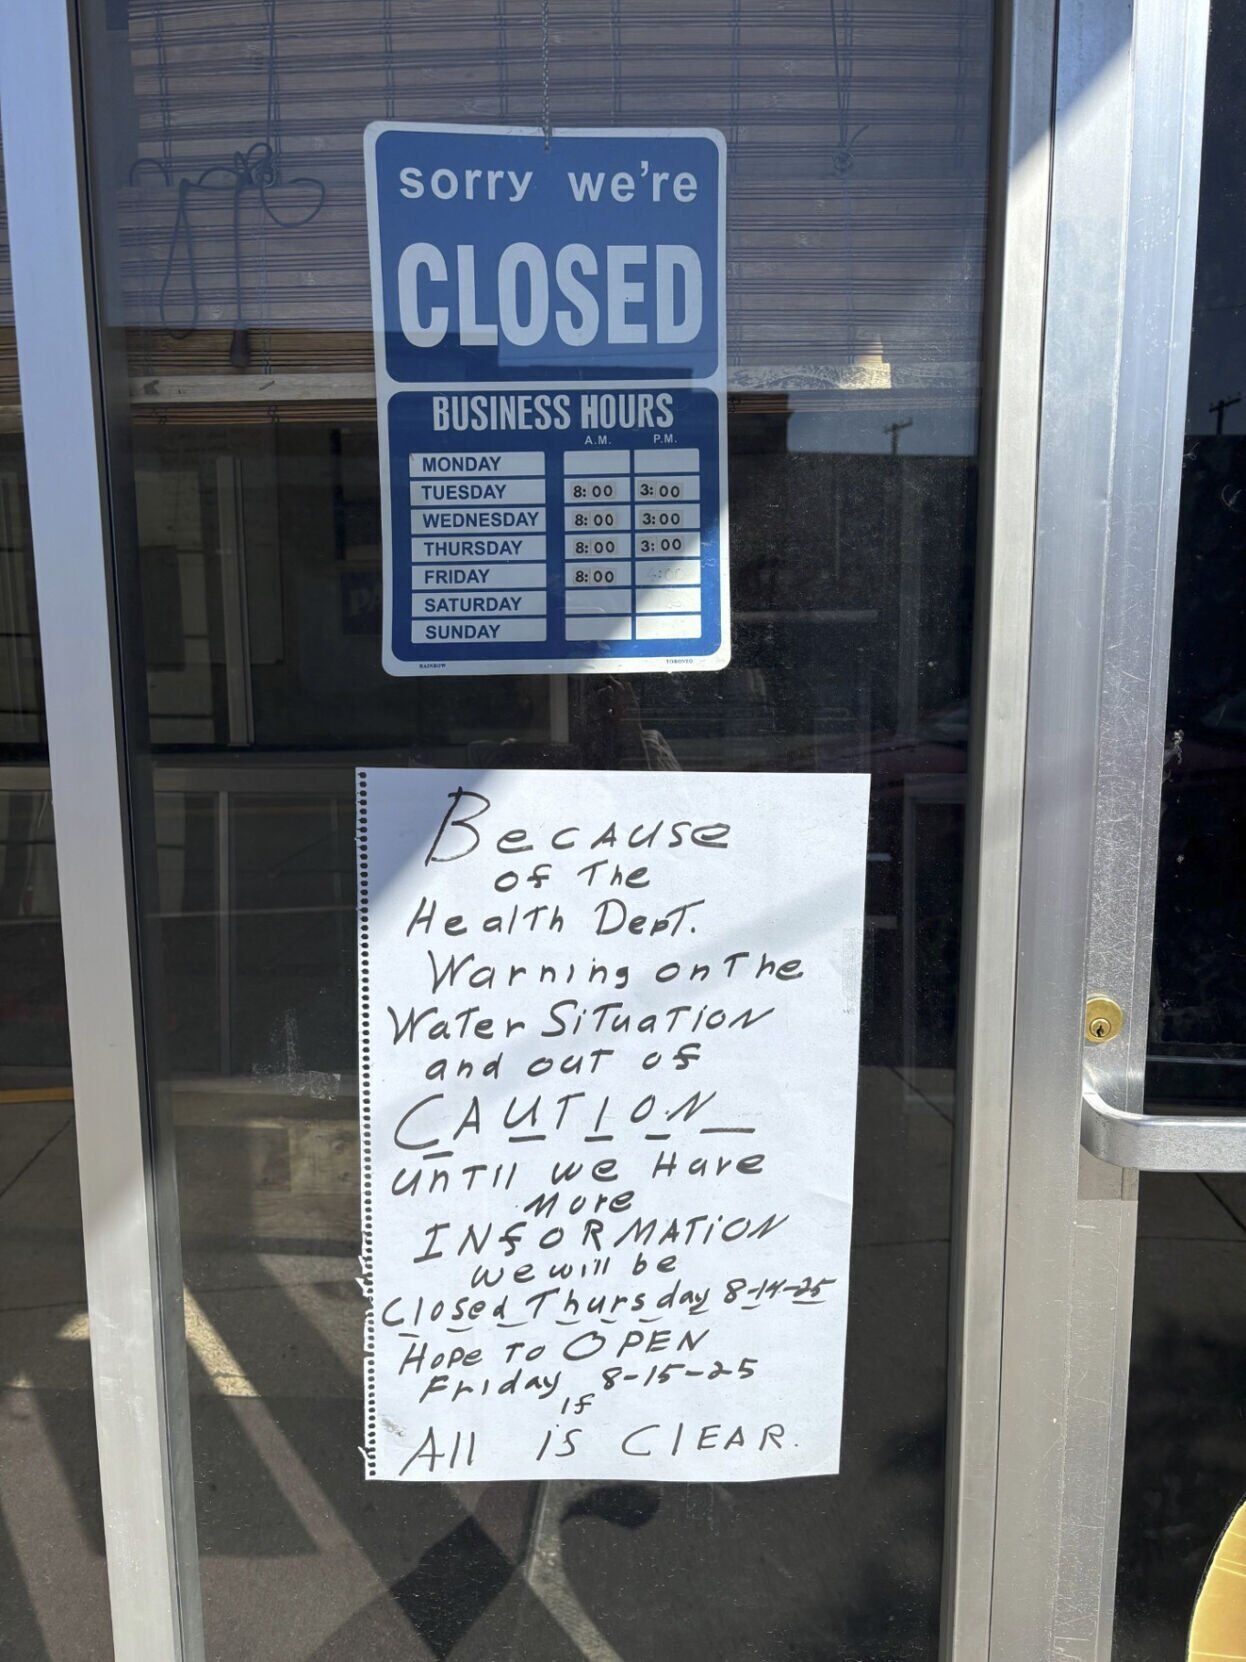 sorry we're
CLOSED
BUSINESS HOURS
A.M. P.M.
MONDAY
TUESDAY 8:00 3:00
WEDNESDAY 8:00 3:00
THURSDAY 8:00 3:00
FRIDAY 8:00
SATURDAY
SUNDAY
RAINBOW TORONTO
Because
of The
Health Dept.
Warning on The
Water Situation
and out of
CAUTION
until we Have
More
INFORMATION
we will be
Closed Thursday 8-14-25
Hope To OPEN
Friday 8-15-25
if
All is CLEAR.